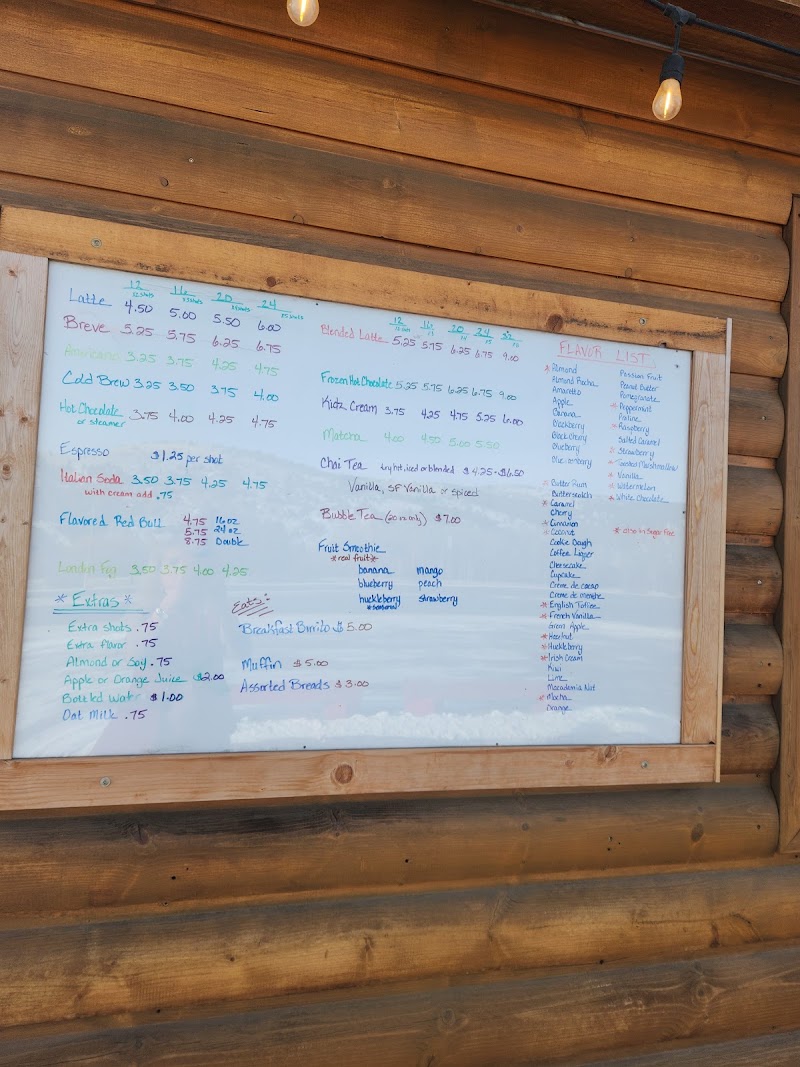 12 16 20 24
Latte 4.50 5.00 5.50 6.00
Breve 5.25 5.75 6.25 6.75
Americano 3.25 3.75 4.25 4.75
Cold Brew 3.25 3.50 3.75 4.00
Hot Chocolate 3.75 4.00 4.25 4.75
or steamer
Espresso $1.25 per shot
Italian Soda 3.50 3.75 4.25 4.75
with cream add .75
Flavored Red Bull 4.75 16oz
5.75 24oz
8.75 Double
London Fog 3.50 3.75 4.00 4.25
* Extras *
Extra shots .75
Extra flavor .75
Almond or Soy .75
Apple or Orange Juice $2.00
Bottled Water $1.00
Oat Milk .75
Eats:
Breakfast Burrito $5.00
Muffin $5.00
Assorted Breads $3.00
12 16 20 24 32
Blended Latte 5.25 5.75 6.25 6.75 9.00
Frozen Hot Chocolate 5.25 5.75 6.25 6.75 9.00
Kidz Cream 3.75 4.25 4.75 5.25 6.00
Matcha 4.00 4.50 5.00 5.50
Chai Tea try hot, iced or blended $4.25-$6.50
Vanilla, SF Vanilla or spiced
Bubble Tea (20oz only) $7.00
Fruit Smoothie
*real fruit*
banana mango
blueberry peach
huckleberry strawberry
*seasonal
FLAVOR LIST
* Almond
Almond Rocha
Amaretto
Apple
Banana
Blackberry
Black Cherry
Blueberry
* Butter Rum
Butterscotch
* Caramel
Cherry
* Cinnamon
* Coconut
Cookie Dough
Coffee Liquer
Cheesecake
Cupcake
Creme de cacao
Creme de menthe
* English Toffee
* French Vanilla
Green Apple
* Hazelnut
* Huckleberry
* Irish Cream
Kiwi
Lime
Macadamia Nut
* Mocha
Orange
Passion Fruit
Peanut Butter
Pomegranate
* Peppermint
Praline
* Raspberry
Salted Caramel
* Strawberry
* Toasted Marshmallow
* Vanilla
* Watermelon
* White Chocolate
* also in Sugar Free